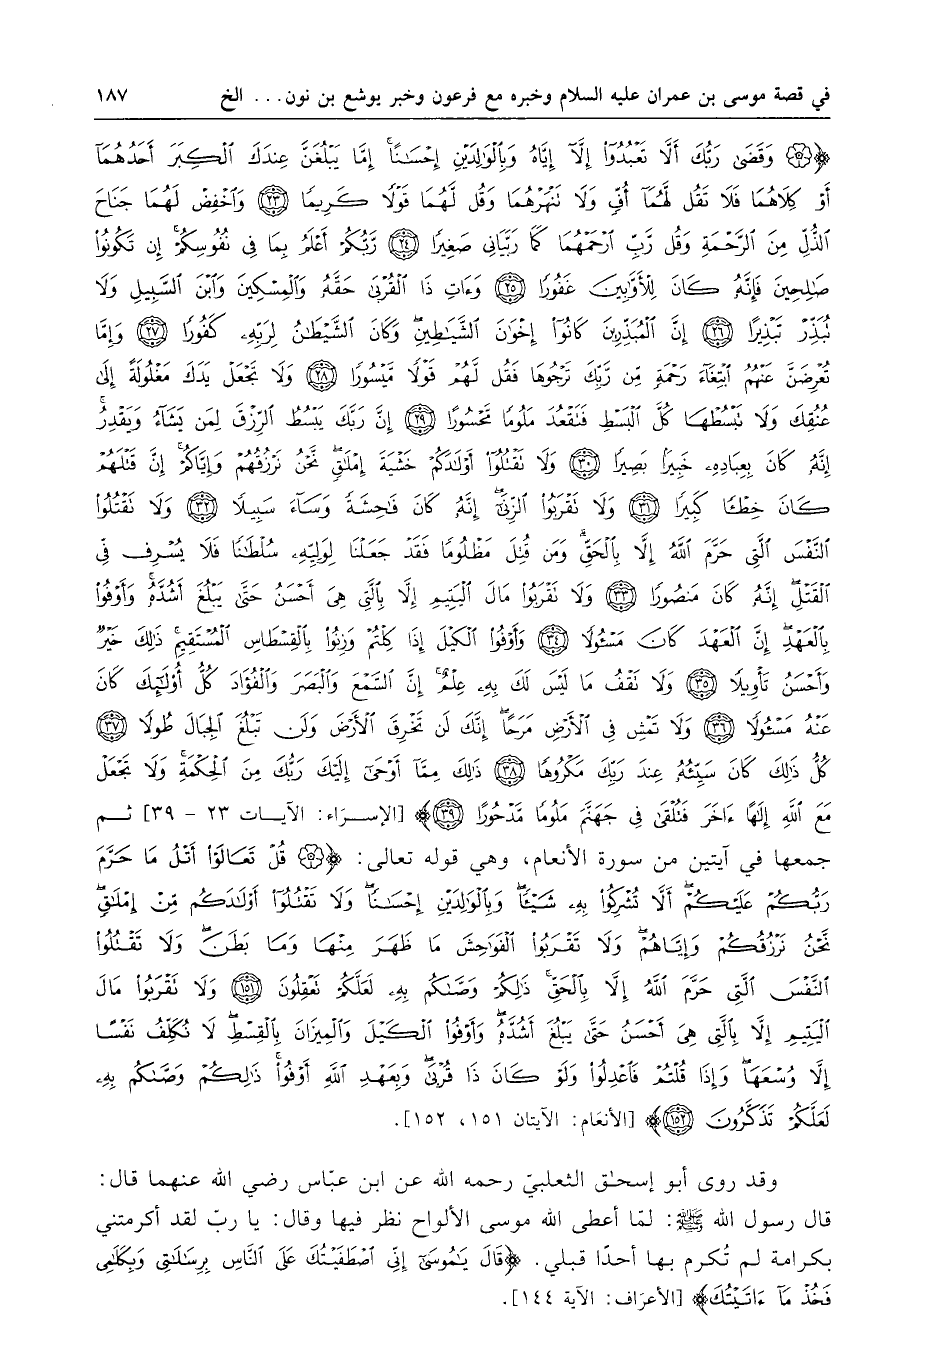 في قصة موسى بن عمران عليه السلام وخبره مع فرعون وخبر يوشع بن نون... الخ ١٨٧
﴿۞ وَقَضَىٰ رَبُّكَ أَلَّا تَعْبُدُوٓا۟ إِلَّآ إِيَّاهُ وَبِٱلْوَٰلِدَيْنِ إِحْسَٰنًا ۚ إِمَّا يَبْلُغَنَّ عِندَكَ ٱلْكِبَرَ أَحَدُهُمَآ
أَوْ كِلَاهُمَا فَلَا تَقُل لَّهُمَآ أُفٍّ وَلَا تَنْهَرْهُمَا وَقُل لَّهُمَا قَوْلًا كَرِيمًا ٢٣ وَٱخْفِضْ لَهُمَا جَنَاحَ
ٱلذُّلِّ مِنَ ٱلرَّحْمَةِ وَقُل رَّبِّ ٱرْحَمْهُمَا كَمَا رَبَّيَانِى صَغِيرًا ٢٤ رَّبُّكُمْ أَعْلَمُ بِمَا فِى نُفُوسِكُمْ ۚ إِن تَكُونُوا۟
صَٰلِحِينَ فَإِنَّهُۥ كَانَ لِلْأَوَّٰبِينَ غَفُورًا ٢٥ وَءَاتِ ذَا ٱلْقُرْبَىٰ حَقَّهُۥ وَٱلْمِسْكِينَ وَٱبْنَ ٱلسَّبِيلِ وَلَا
تُبَذِّرْ تَبْذِيرًا ٢٦ إِنَّ ٱلْمُبَذِّرِينَ كَانُوٓا۟ إِخْوَٰنَ ٱلشَّيَٰطِينِ ۖ وَكَانَ ٱلشَّيْطَٰنُ لِرَبِّهِۦ كَفُورًا ٢٧ وَإِمَّا
تُعْرِضَنَّ عَنْهُمُ ٱبْتِغَآءَ رَحْمَةٍ مِّن رَّبِّكَ تَرْجُوهَا فَقُل لَّهُمْ قَوْلًا مَّيْسُورًا ٢٨ وَلَا تَجْعَلْ يَدَكَ مَغْلُولَةً إِلَىٰ
عُنُقِكَ وَلَا تَبْسُطْهَا كُلَّ ٱلْبَسْطِ فَتَقْعُدَ مَلُومًا مَّحْسُورًا ٢٩ إِنَّ رَبَّكَ يَبْسُطُ ٱلرِّزْقَ لِمَن يَشَآءُ وَيَقْدِرُ ۚ
إِنَّهُۥ كَانَ بِعِبَادِهِۦ خَبِيرًۢا بَصِيرًا ٣٠ وَلَا تَقْتُلُوٓا۟ أَوْلَٰدَكُمْ خَشْيَةَ إِمْلَٰقٍ ۖ نَّحْنُ نَرْزُقُهُمْ وَإِيَّاكُمْ ۚ إِنَّ قَتْلَهُمْ
كَانَ خِطْـًٔا كَبِيرًا ٣١ وَلَا تَقْرَبُوا۟ ٱلزِّنَىٰٓ ۖ إِنَّهُۥ كَانَ فَٰحِشَةً وَسَآءَ سَبِيلًا ٣٢ وَلَا تَقْتُلُوا۟
ٱلنَّفْسَ ٱلَّتِى حَرَّمَ ٱللَّهُ إِلَّا بِٱلْحَقِّ ۗ وَمَن قُتِلَ مَظْلُومًا فَقَدْ جَعَلْنَا لِوَلِيِّهِۦ سُلْطَٰنًا فَلَا يُسْرِف فِّى
ٱلْقَتْلِ ۖ إِنَّهُۥ كَانَ مَنصُورًا ٣٣ وَلَا تَقْرَبُوا۟ مَالَ ٱلْيَتِيمِ إِلَّا بِٱلَّتِى هِىَ أَحْسَنُ حَتَّىٰ يَبْلُغَ أَشُدَّهُۥ ۚ وَأَوْفُوا۟
بِٱلْعَهْدِ ۖ إِنَّ ٱلْعَهْدَ كَانَ مَسْـُٔولًا ٣٤ وَأَوْفُوا۟ ٱلْكَيْلَ إِذَا كِلْتُمْ وَزِنُوا۟ بِٱلْقِسْطَاسِ ٱلْمُسْتَقِيمِ ۚ ذَٰلِكَ خَيْرٌ
وَأَحْسَنُ تَأْوِيلًا ٣٥ وَلَا تَقْفُ مَا لَيْسَ لَكَ بِهِۦ عِلْمٌ ۚ إِنَّ ٱلسَّمْعَ وَٱلْبَصَرَ وَٱلْفُؤَادَ كُلُّ أُو۟لَٰٓئِكَ كَانَ
عَنْهُ مَسْـُٔولًا ٣٦ وَلَا تَمْشِ فِى ٱلْأَرْضِ مَرَحًا ۖ إِنَّكَ لَن تَخْرِقَ ٱلْأَرْضَ وَلَن تَبْلُغَ ٱلْجِبَالَ طُولًا ٣٧
كُلُّ ذَٰلِكَ كَانَ سَيِّئُهُۥ عِندَ رَبِّكَ مَكْرُوهًا ٣٨ ذَٰلِكَ مِمَّآ أَوْحَىٰٓ إِلَيْكَ رَبُّكَ مِنَ ٱلْحِكْمَةِ ۗ وَلَا تَجْعَلْ
مَعَ ٱللَّهِ إِلَٰهًا ءَاخَرَ فَتُلْقَىٰ فِى جَهَنَّمَ مَلُومًا مَّدْحُورًا ٣٩﴾ [الإسرَاء: الآيات ٢٣ - ٣٩] ثم
جمعها في آيتين من سورة الأنعام، وهي قوله تعالى: ﴿۞ قُلْ تَعَالَوْا۟ أَتْلُ مَا حَرَّمَ
رَبُّكُمْ عَلَيْكُمْ ۖ أَلَّا تُشْرِكُوا۟ بِهِۦ شَيْـًٔا ۖ وَبِٱلْوَٰلِدَيْنِ إِحْسَٰنًا ۖ وَلَا تَقْتُلُوٓا۟ أَوْلَٰدَكُم مِّنْ إِمْلَٰقٍ ۖ
نَّحْنُ نَرْزُقُكُمْ وَإِيَّاهُمْ ۖ وَلَا تَقْرَبُوا۟ ٱلْفَوَٰحِشَ مَا ظَهَرَ مِنْهَا وَمَا بَطَنَ ۖ وَلَا تَقْتُلُوا۟
ٱلنَّفْسَ ٱلَّتِى حَرَّمَ ٱللَّهُ إِلَّا بِٱلْحَقِّ ۚ ذَٰلِكُمْ وَصَّىٰكُم بِهِۦ لَعَلَّكُمْ تَعْقِلُونَ ١٥١ وَلَا تَقْرَبُوا۟ مَالَ
ٱلْيَتِيمِ إِلَّا بِٱلَّتِى هِىَ أَحْسَنُ حَتَّىٰ يَبْلُغَ أَشُدَّهُۥ ۖ وَأَوْفُوا۟ ٱلْكَيْلَ وَٱلْمِيزَانَ بِٱلْقِسْطِ ۖ لَا نُكَلِّفُ نَفْسًا
إِلَّا وُسْعَهَا ۖ وَإِذَا قُلْتُمْ فَٱعْدِلُوا۟ وَلَوْ كَانَ ذَا قُرْبَىٰ ۖ وَبِعَهْدِ ٱللَّهِ أَوْفُوا۟ ۚ ذَٰلِكُمْ وَصَّىٰكُم بِهِۦ
لَعَلَّكُمْ تَذَكَّرُونَ ١٥٢﴾ [الأنعَام: الآيتان ١٥١، ١٥٢].
وقد روى أبو إسحٰق الثعلبيّ رحمه الله عن ابن عبّاس رضي الله عنهما قال:
قال رسول الله ﷺ: لمّا أعطى الله موسى الألواح نظر فيها وقال: يا ربّ لقد أكرمتني
بكرامة لم تُكرم بها أحدًا قبلي. ﴿قَالَ يَٰمُوسَىٰٓ إِنِّى ٱصْطَفَيْتُكَ عَلَى ٱلنَّاسِ بِرِسَٰلَٰتِى وَبِكَلَٰمِى
فَخُذْ مَآ ءَاتَيْتُكَ﴾ [الأعرَاف: الآية ١٤٤].